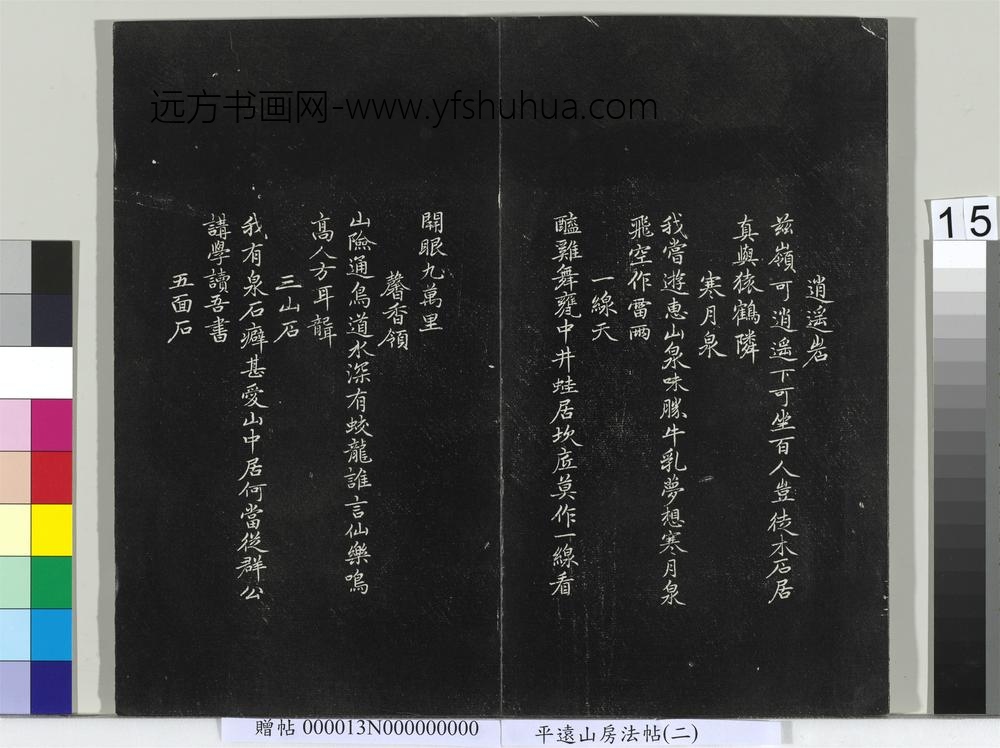 远方书画网-www.yfshuhua.com
15
逍遥岩
兹嶺可逍遥下可坐百人豈徒木石居
真與猿鶴隣
寒月泉
我嘗遊惠山泉味勝牛乳夢想寒月泉
飛空作雷雨
一線天
醯雞舞甕中井蛙居坎底莫作一線看
開眼九萬里
馨香領
山險通鳥道水深有蛟龍誰言仙樂鳴
高人方耳聾
三山石
我有泉石癖甚愛山中居何當從群公
講學讀吾書
五面石
贈帖 000013N000000000
平遠山房法帖(二)